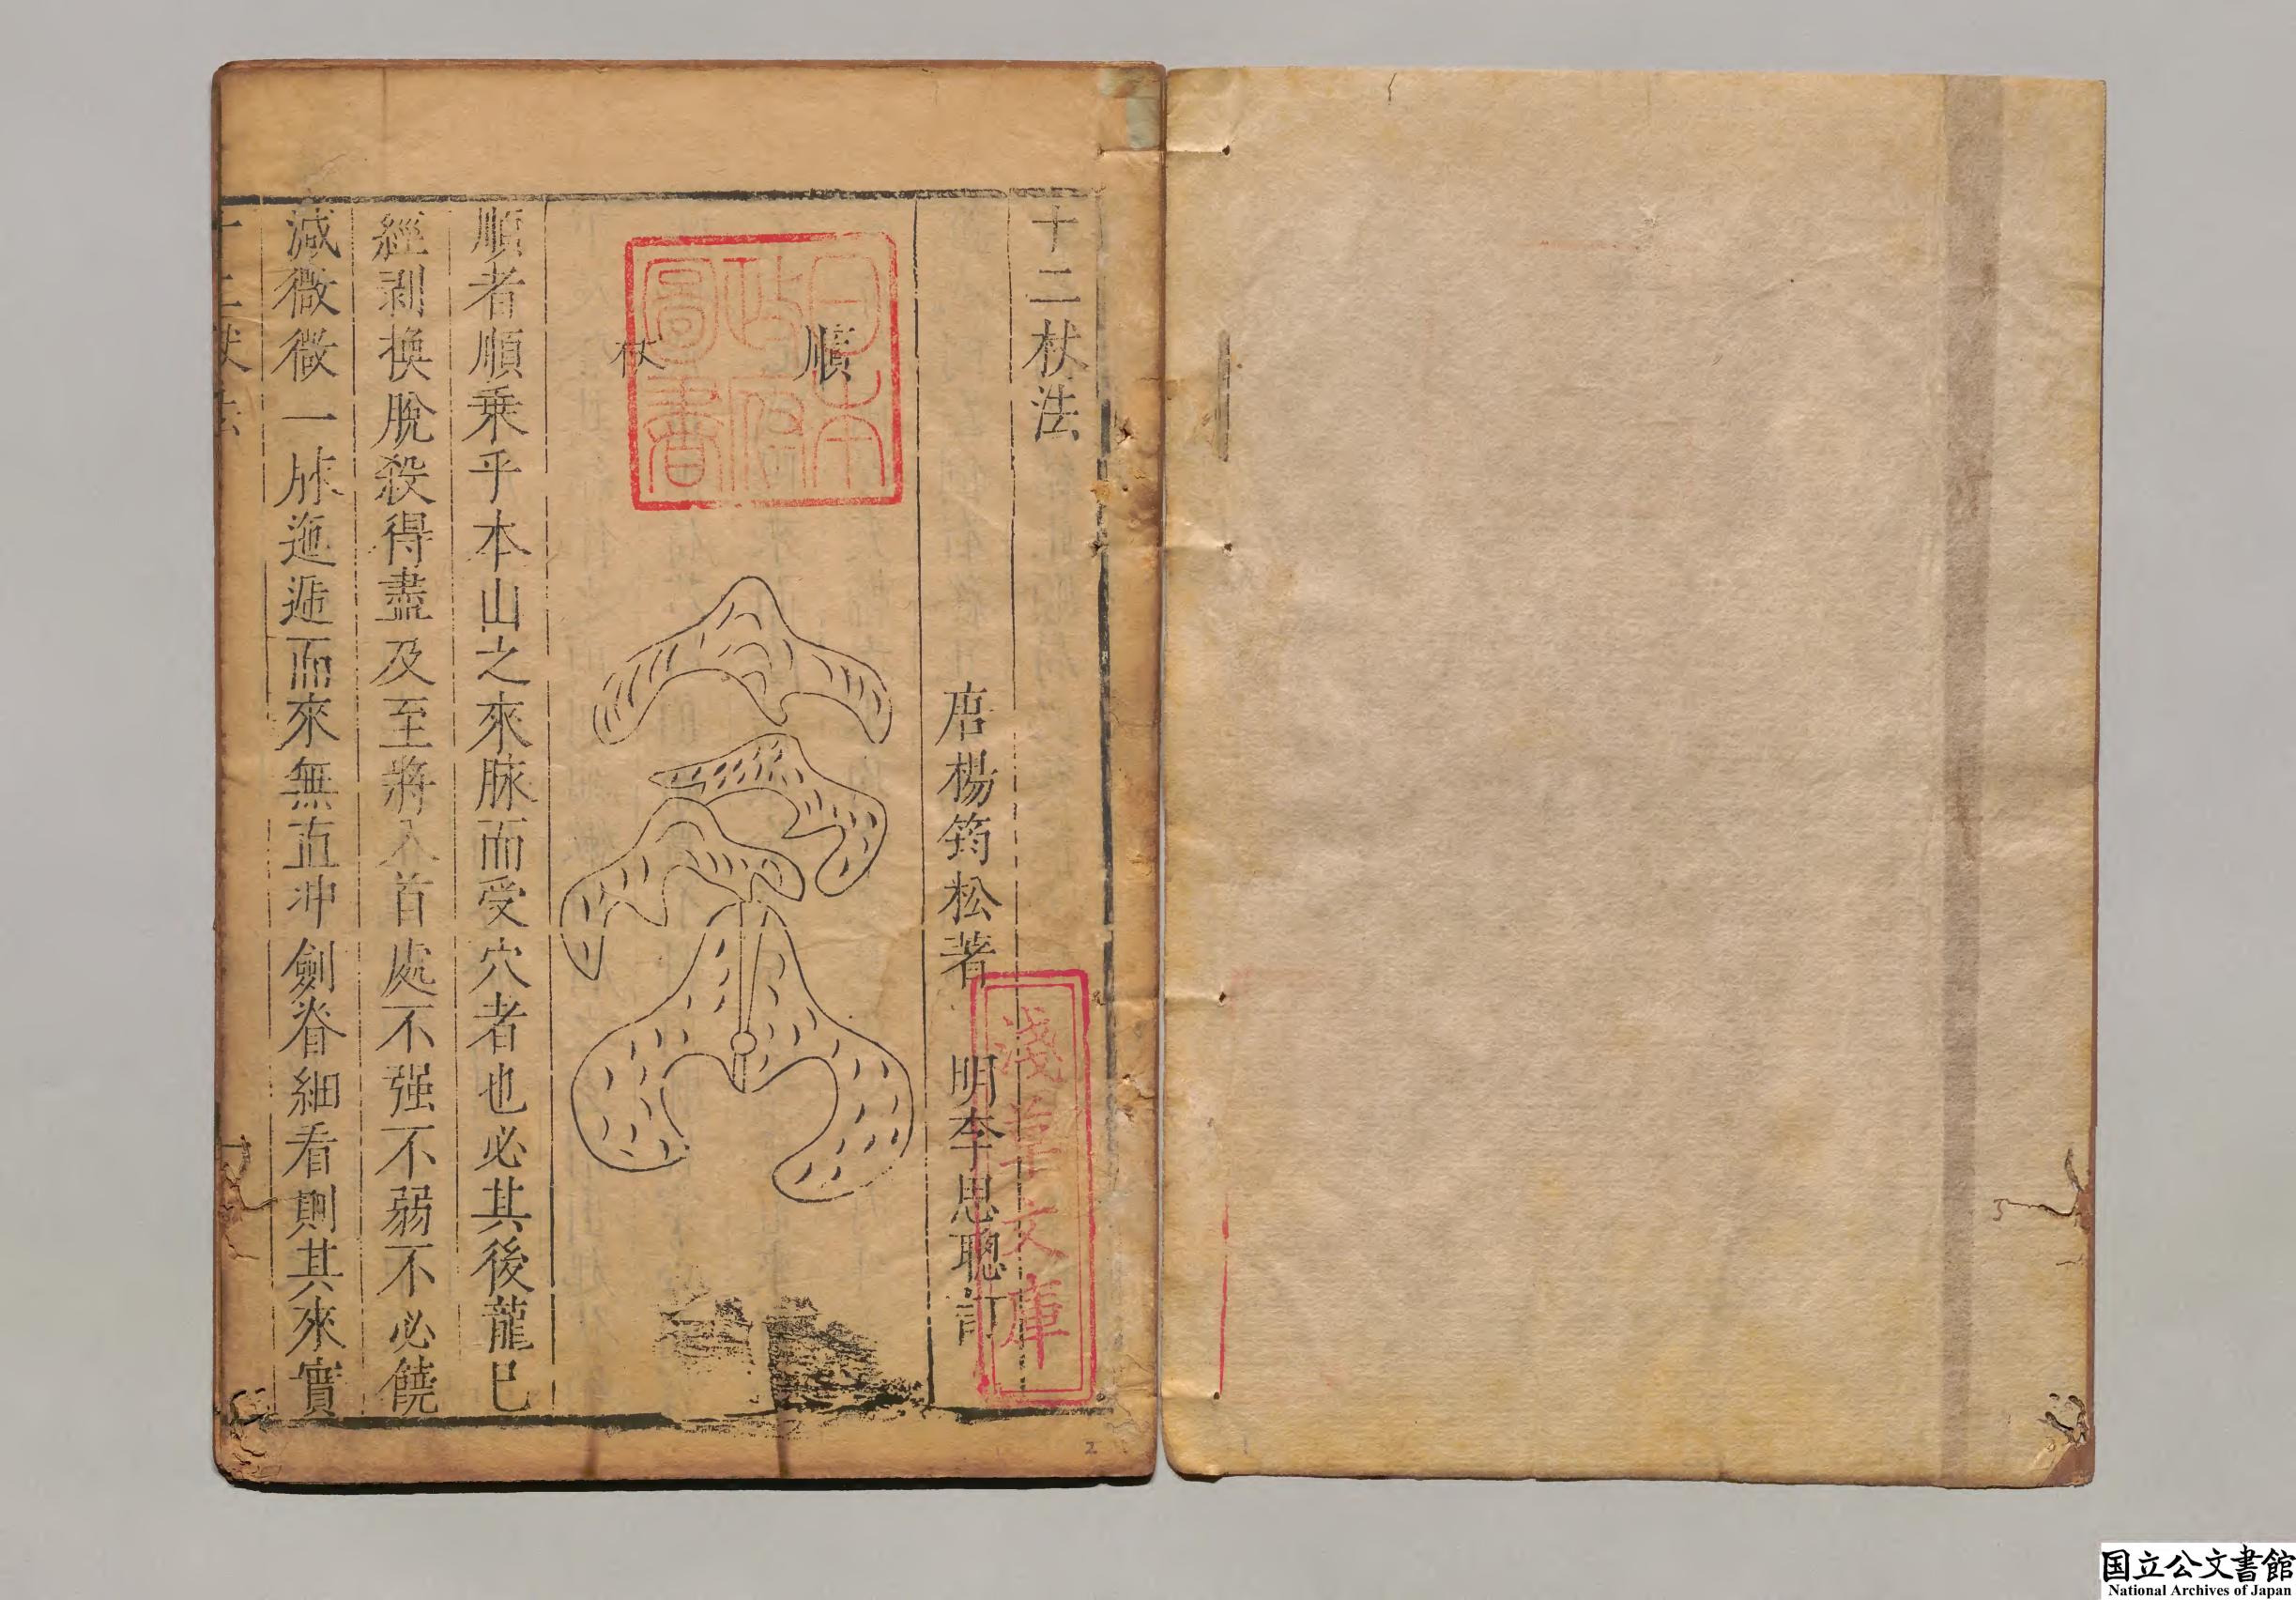 十二杖法
唐楊筠松著　明李思聰訂
順
杖
順者順乗乎本山之來脉而受穴者也必其後龍巳
經剥換脫殺得盡及至將入首處不强不弱不必饒
減微微一脉迤逓而來無直冲劍脊細看則其來實
十二杖法
日本
政府
圖書
淺草文庫
2
国立公文書館
National Archives of Japan